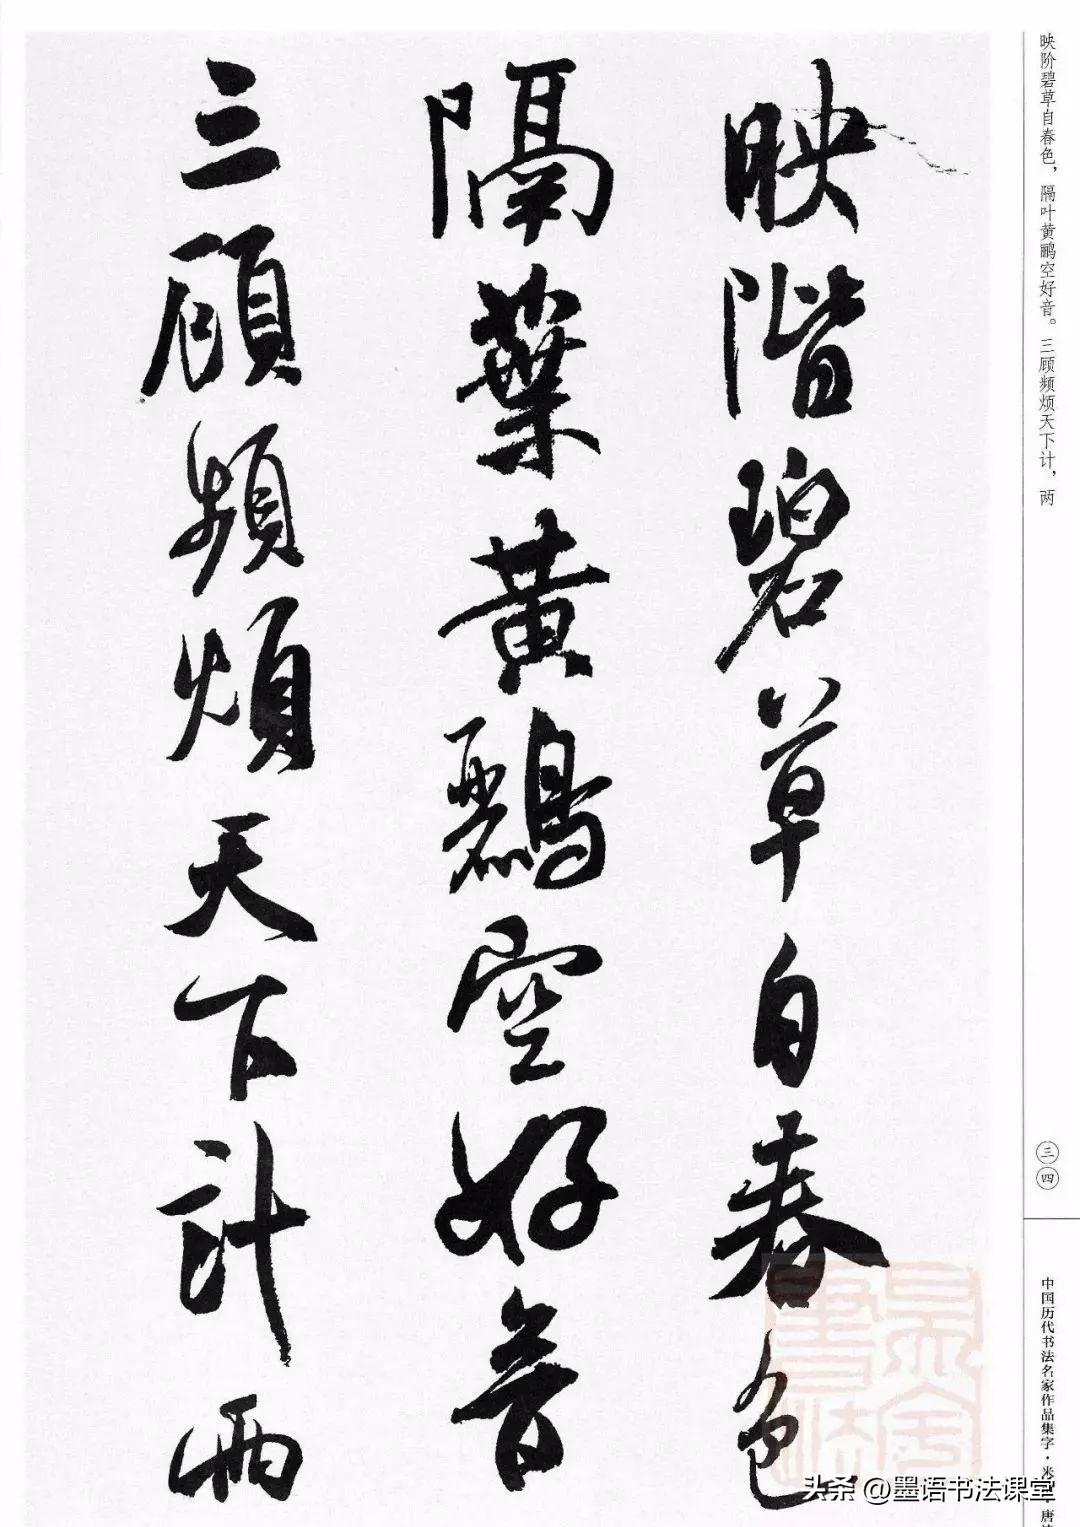 映階碧草自春色
隔葉黃鸝空好音
三顧頻煩天下計兩
映阶碧草自春色，隔叶黄鹂空好音。三顾频烦天下计，两
三四
中国历代书法名家作品集字·米
唐
头条 @墨语书法课堂